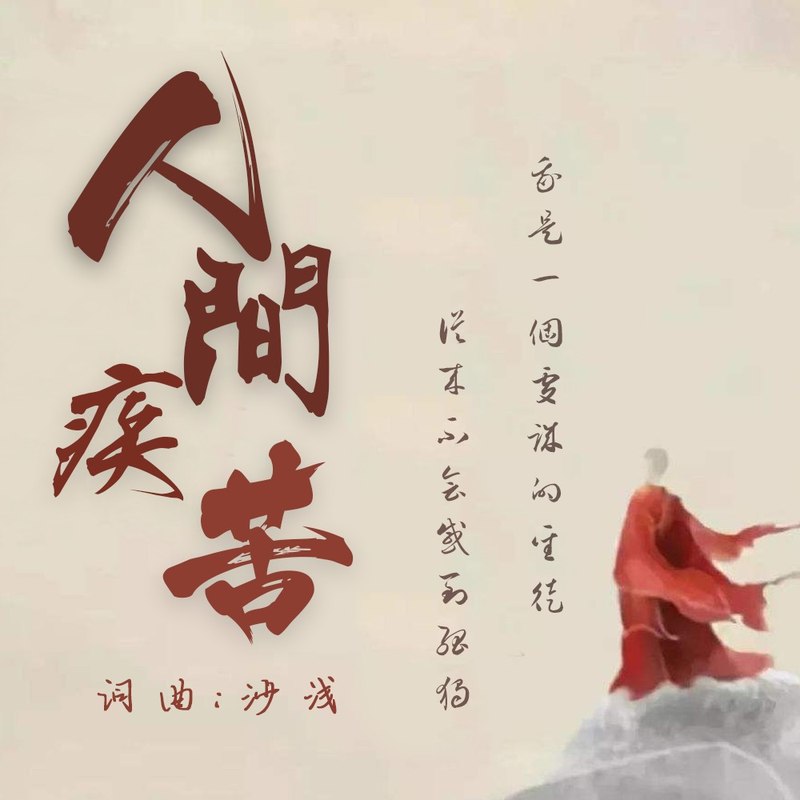 人間疾苦
词曲：沙浅
我是一個虔诚的圣徒
從来不会感到孤独